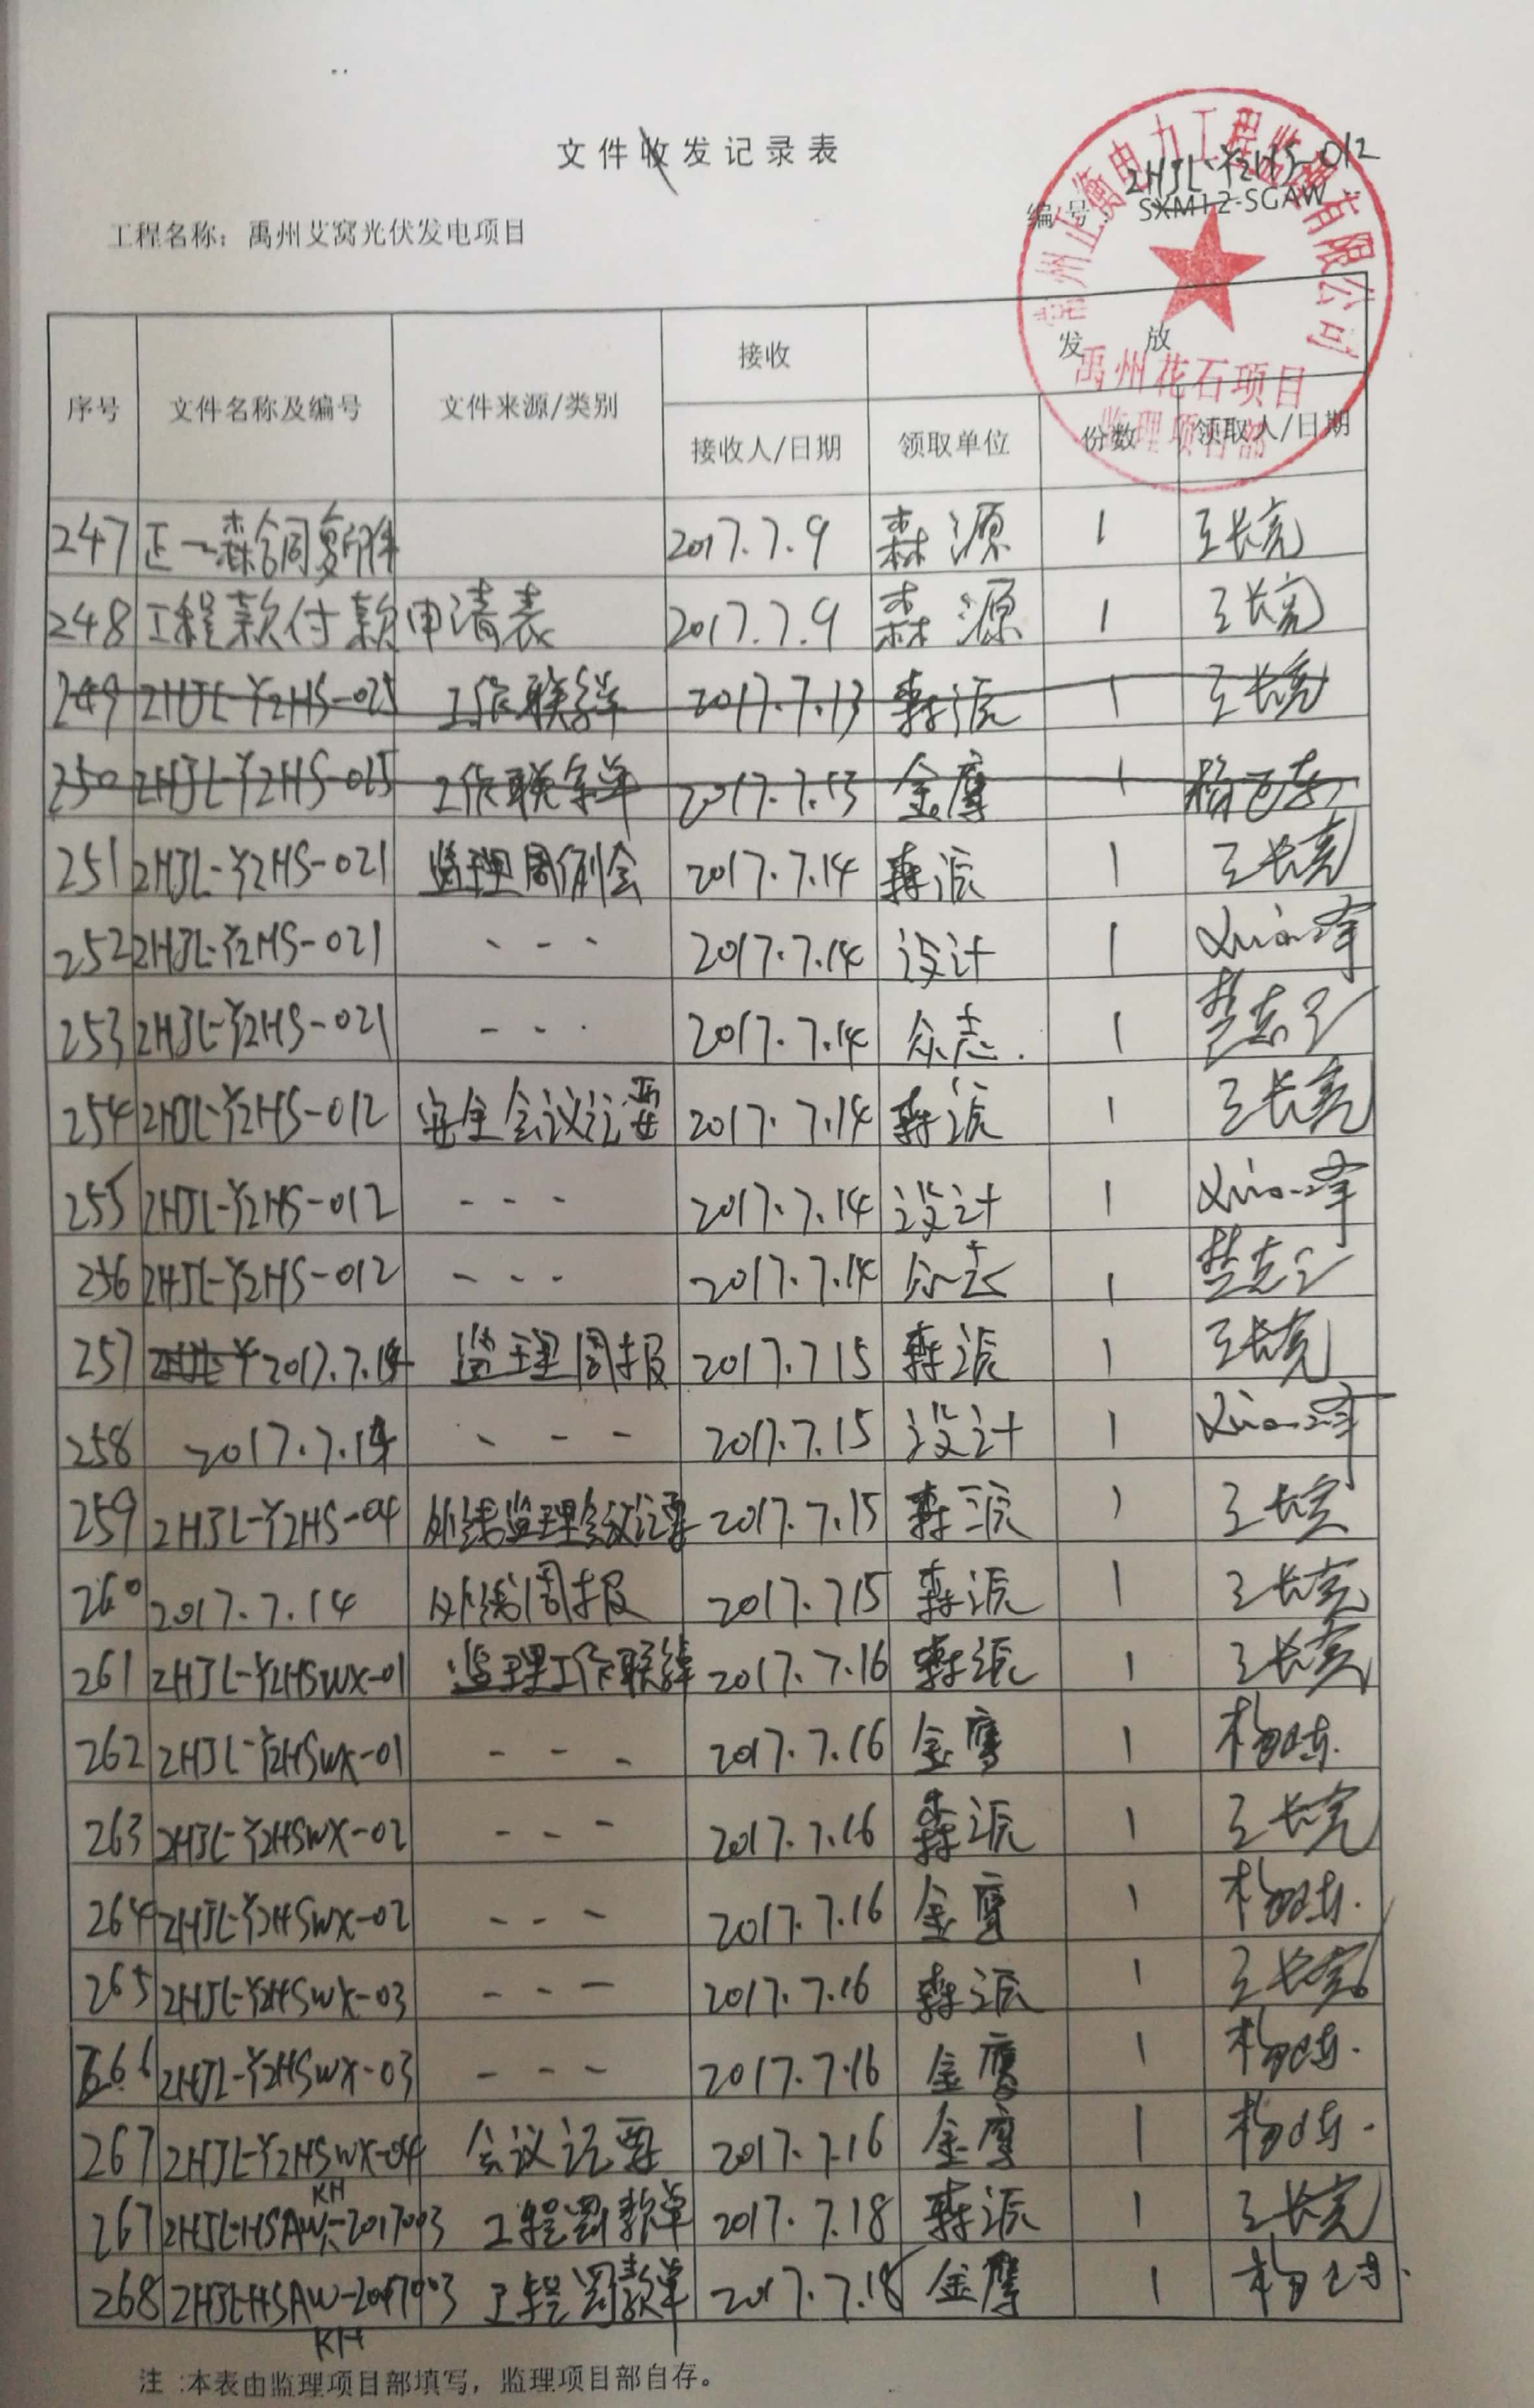 文件收发记录表
常州正衡电力工程监理有限公司
禹州花石项目
监理项目部
ZHJL-YZHS-012
编号: SXM12-SGAW
工程名称：禹州艾窝光伏发电项目
序号 文件名称及编号 文件来源/类别 接收 发放
接收人/日期 领取单位 份数 领取人/日期
247 正一森合同复印件 2017.7.9 森源 1 王长亮
248 工程款付款申请表 2017.7.9 森源 1 王长亮
249 ZHJL-YZHS-025 工作联络单 2017.7.13 森源 1 王长亮
250 ZHJL-YZHS-025 工作联络单 2017.7.13 金鹰 1
251 ZHJL-YZHS-021 监理周例会 2017.7.14 森源 1 王长亮
252 ZHJL-YZHS-021 - - - 2017.7.14 设计 1
253 ZHJL-YZHS-021 - - - 2017.7.14 众志 1
254 ZHJL-YZHS-012 安全会议记要 2017.7.14 森源 1 王长亮
255 ZHJL-YZHS-012 - - - 2017.7.14 设计 1
256 ZHJL-YZHS-012 - - - 2017.7.14 众志 1
257 2017.7.14 监理周报 2017.7.15 森源 1 王长亮
258 2017.7.14 - - - 2017.7.15 设计 1
259 ZHJL-YZHS-04 外线监理会议记要 2017.7.15 森源 1 王长亮
260 2017.7.14 外线周报 2017.7.15 森源 1 王长亮
261 ZHJL-YZHSWX-01 监理工作联络单 2017.7.16 森源 1 王长亮
262 ZHJL-YZHSWX-01 - - - 2017.7.16 金鹰 1
263 ZHJL-YZHSWX-02 - - - 2017.7.16 森源 1 王长亮
264 ZHJL-YZHSWX-02 - - - 2017.7.16 金鹰 1
265 ZHJL-YZHSWX-03 - - - 2017.7.16 森源 1 王长亮
266 ZHJL-YZHSWX-03 - - - 2017.7.16 金鹰 1
267 ZHJL-YZHSWX-04 会议记要 2017.7.16 金鹰 1
267 ZHJL-HSAW-KH-2017003 工程罚款单 2017.7.18 森源 1 王长亮
268 ZHJL-HSAW-2017003 工程罚款单 2017.7.18 金鹰 1
KH
注:本表由监理项目部填写，监理项目部自存。